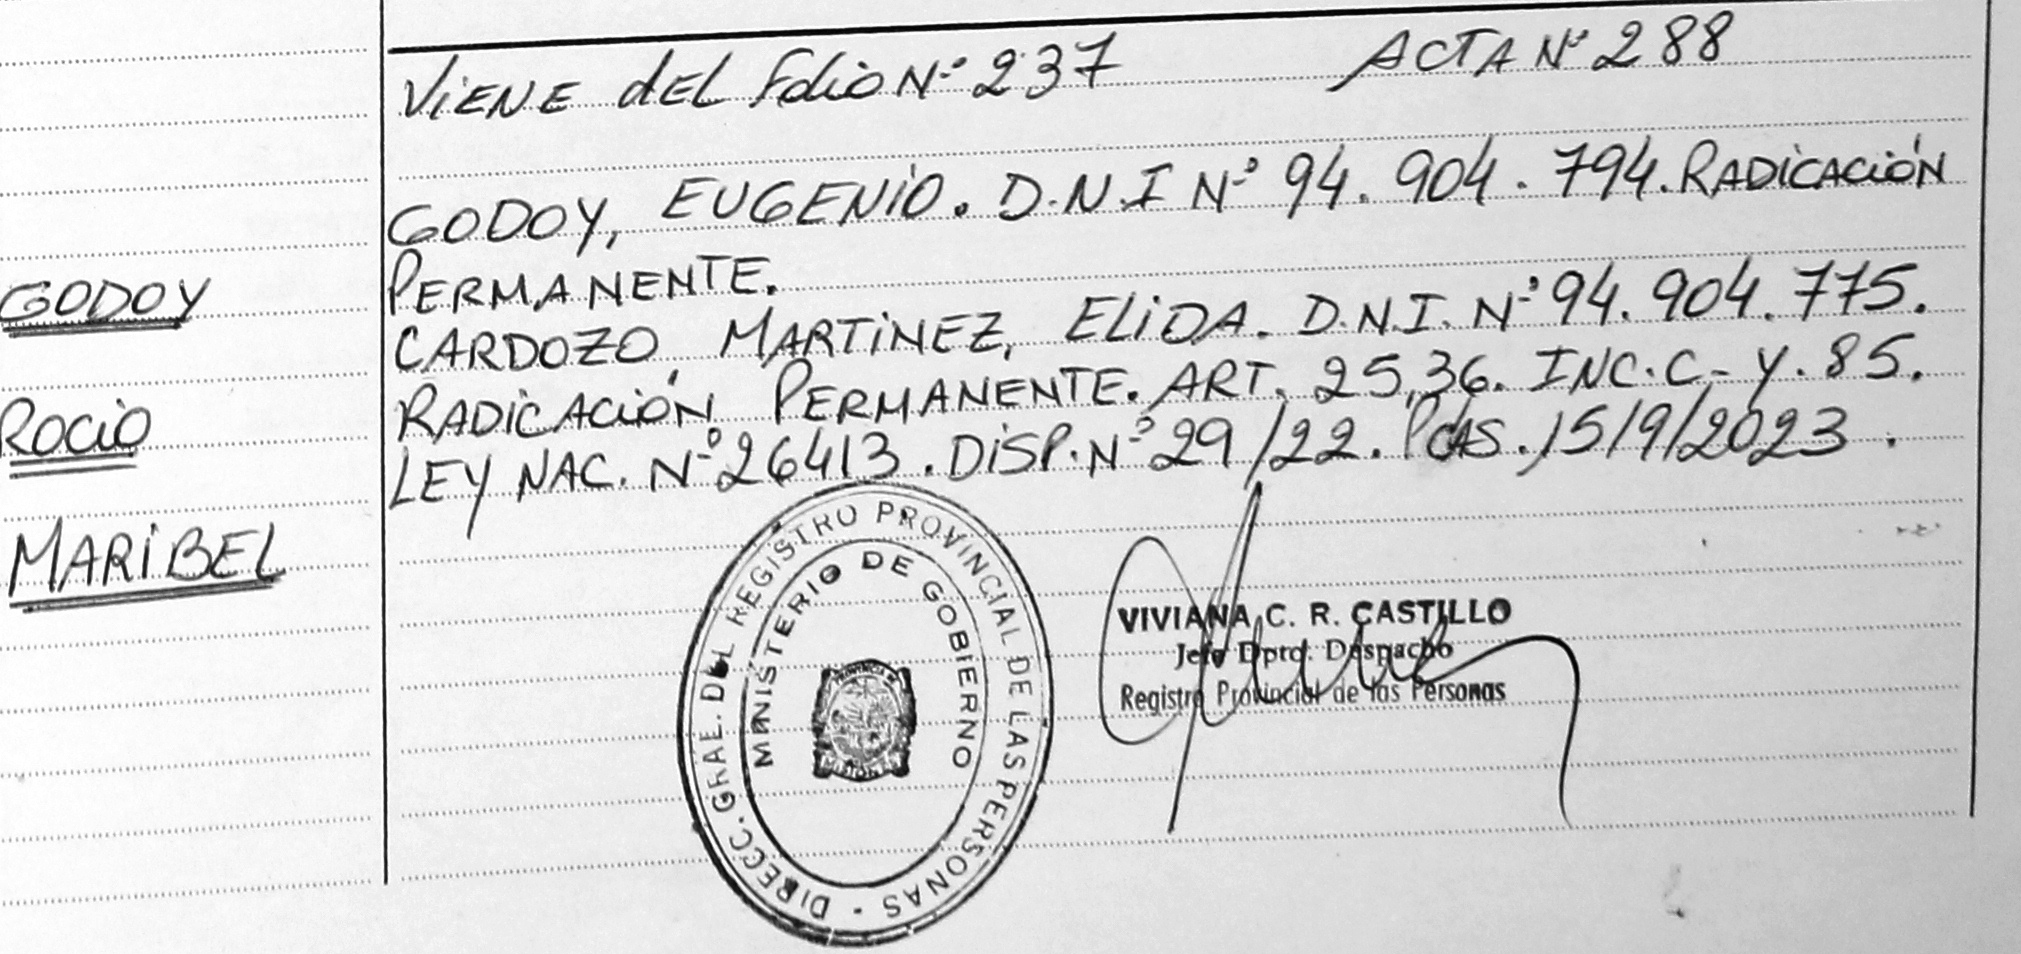 VIENE DEL Folio N° 237 ACTA N° 288
GODOY, EUGENIO. D.N.I N° 94.904.794. RADICACIÓN
PERMANENTE.
CARDOZO MARTINEZ, ELIDA. D.N.I. N° 94.904.775.
RADICACIÓN PERMANENTE. ART. 25,36. INC. C.- Y. 85.
LEY NAC. N° 26413. DISP. N° 29/22. Pdas. 15/9/2023.
GODOY
ROCIO
MARIBEL
DIRECC. GRAL. DEL REGISTRO PROVINCIAL DE LAS PERSONAS -
MINISTERIO DE GOBIERNO
VIVIANA C. R. CASTILLO
Jefe Dpto. Despacho
Registro Provincial de las Personas